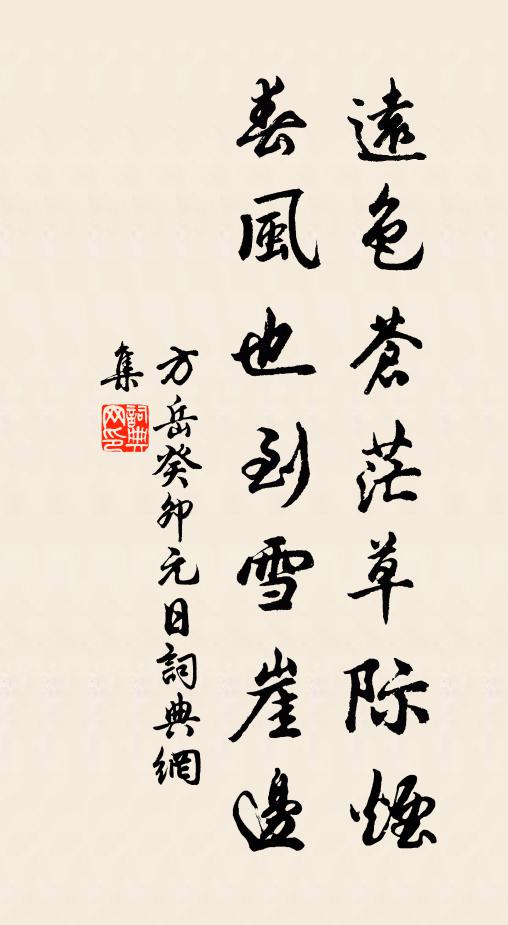 遠色蒼茫草际煙
春風也到雪崖邊
方岳癸卯元日詞典網
集
詞典网印